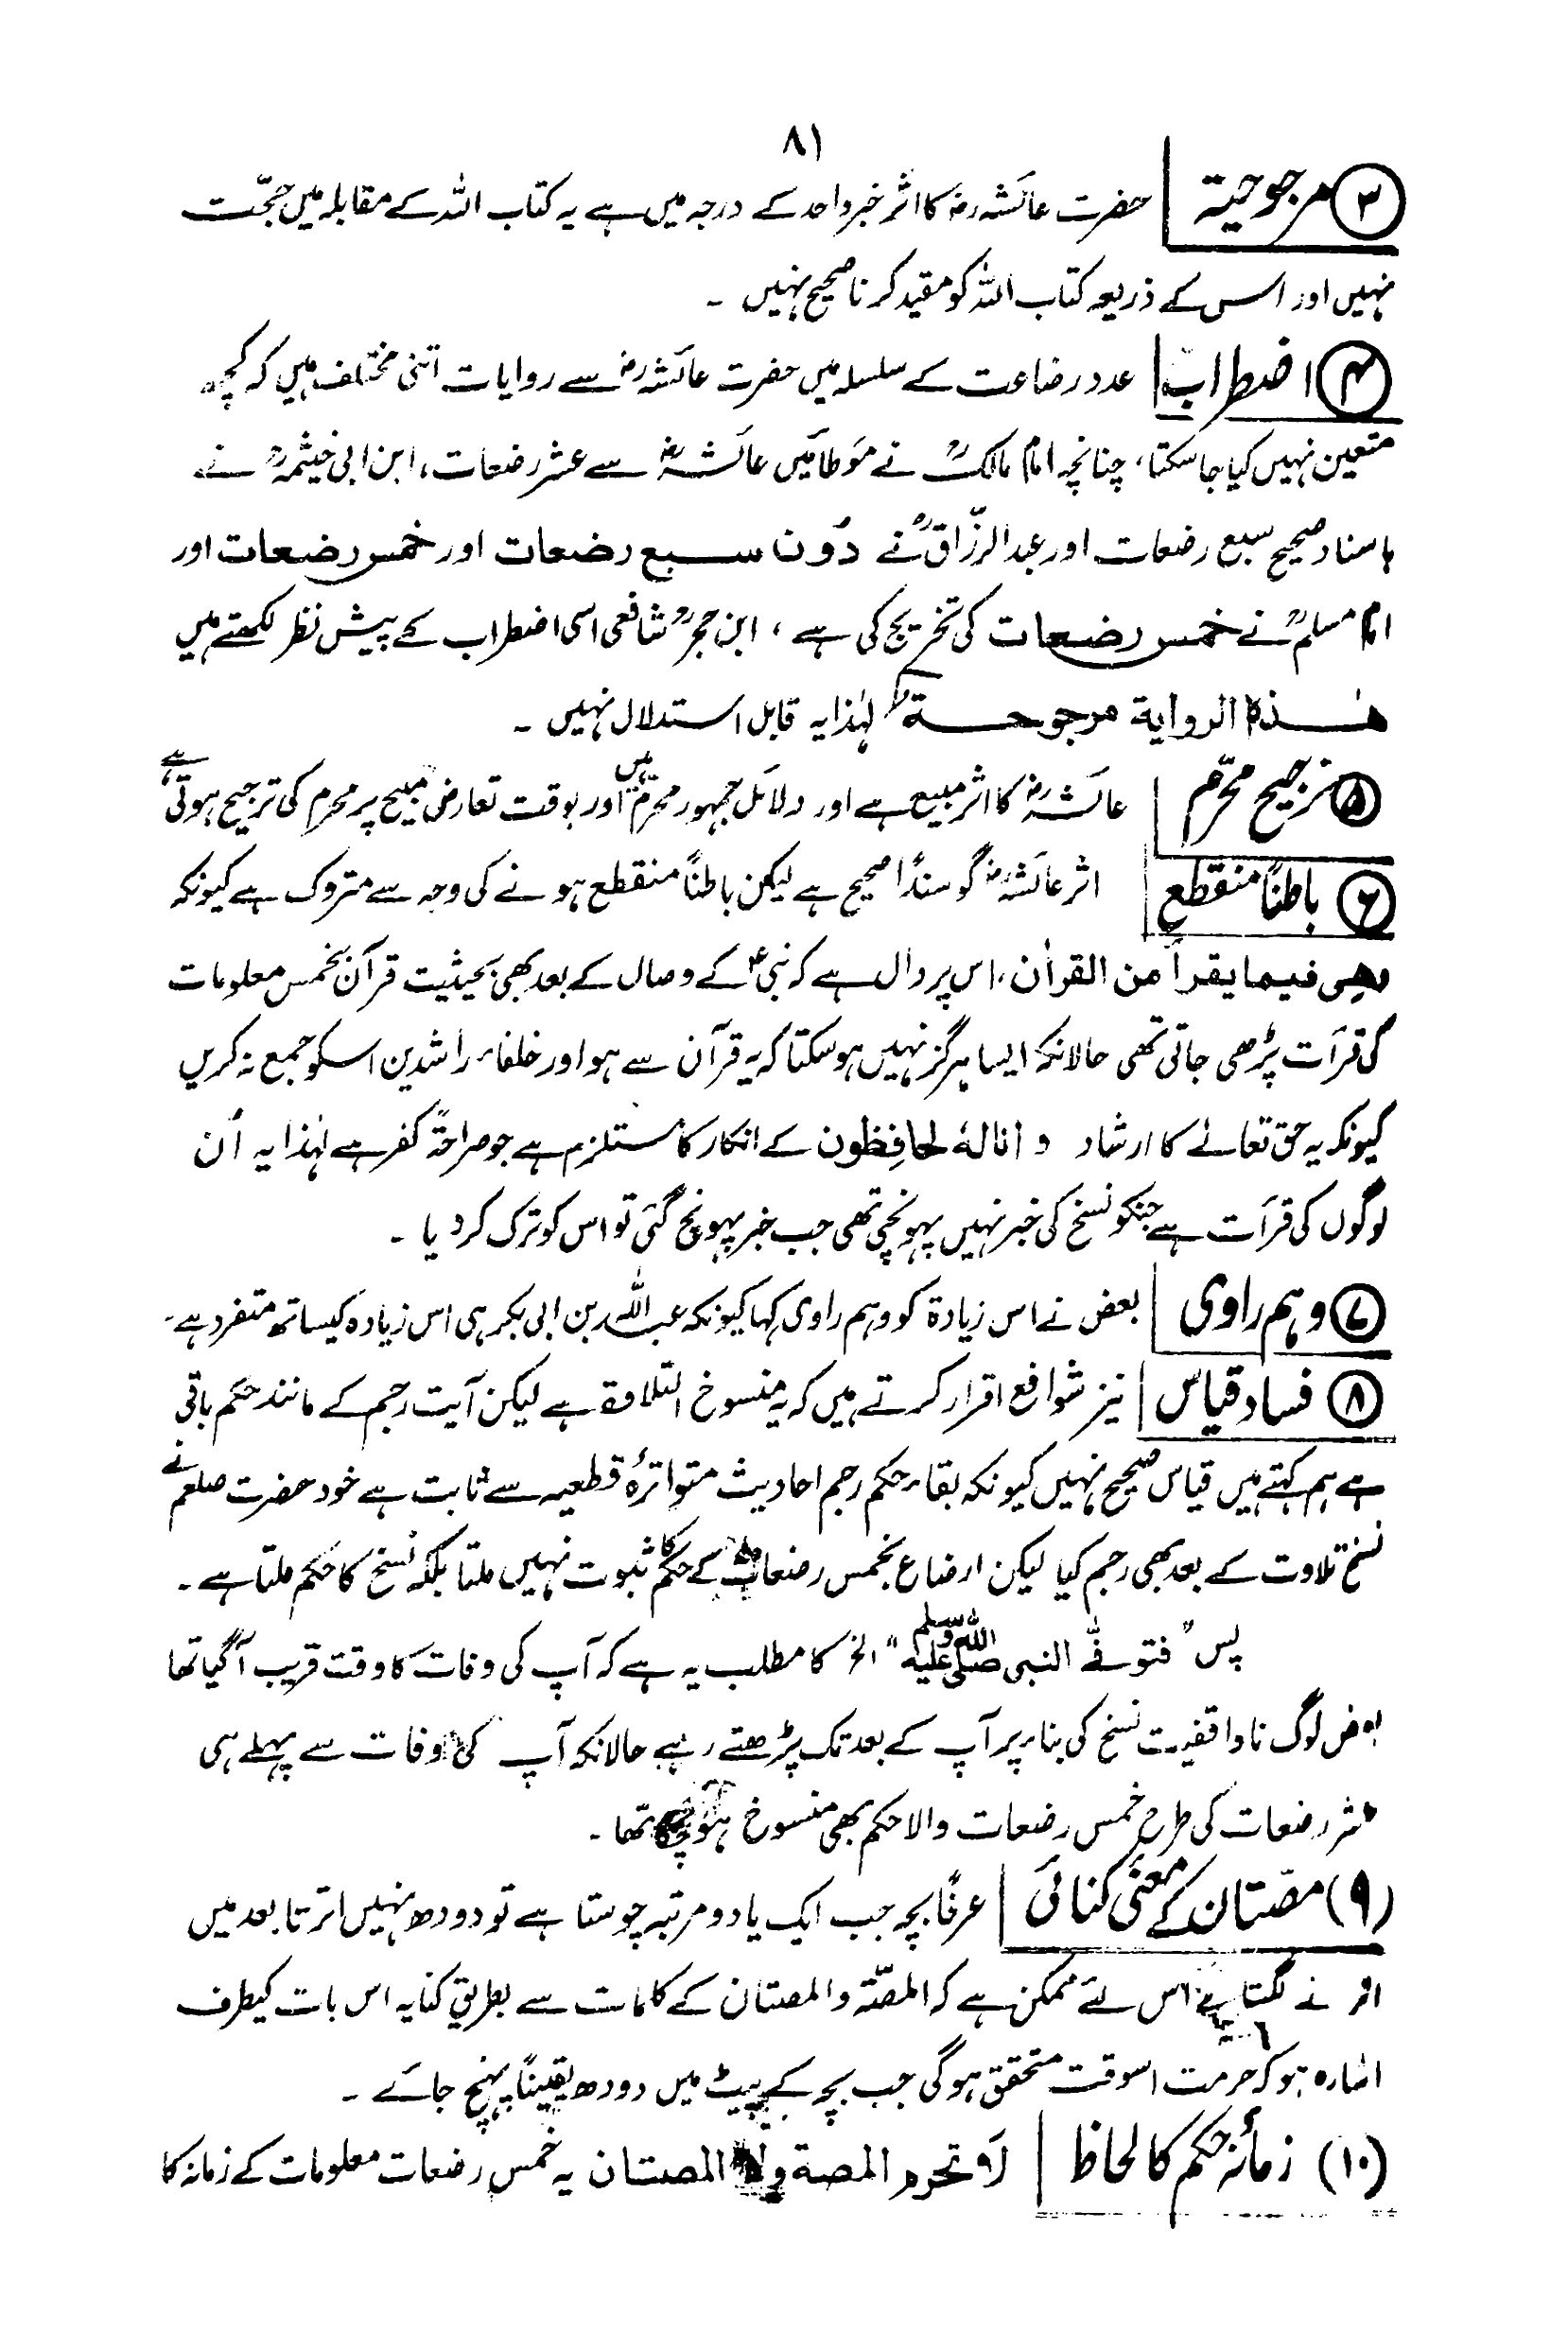 ۸۱
۳ مرجوحیۃ حضرت عائشہؓ کا اثر خبر واحد کے درجہ میں ہے یہ کتاب اللہ کے مقابلہ میں حجّت
نہیں اور اس کے ذریعہ کتاب اللہ کو مقید کرنا صحیح نہیں ۔
۴ اضطراب عدد رضاعت کے سلسلہ میں حضرت عائشہؓ سے روایات اتنی مختلف ہیں کہ کچھ
متعین نہیں کیا جاسکتا، چنانچہ امام مالکؒ نے مؤطا میں عائشہؓ سے عشر رضعات، ابن ابی خیثمہؒ نے
باسناد صحیح سبع رضعات اور عبدالرزّاقؒ نے دون سبع رضعات اور خمس رضعات اور
امام مسلمؒ نے خمس رضعات کی تخریج کی ہے، ابن حجرؒ شافعی اسی اضطراب کے پیش نظر لکھتے ہیں
ھٰذہ الروایۃ مرجوحۃ لہٰذا یہ قابل استدلال نہیں ۔
۵ ترجیح محرّم عائشہؓ کا اثر مبیح ہے اور دلائل جمہور محرّم ہیں اور بوقت تعارض مبیح پر محرم کی ترجیح ہوتی ہے
۶ باطناً منقطع اثر عائشہؓ گو سنداً صحیح ہے لیکن باطناً منقطع ہونے کی وجہ سے متروک ہے کیونکہ
وھی فیما یقرأ من القراٰن، اس پر دال ہے کہ نبیؐ کے وصال کے بعد بھی بحیثیت قرآن بخمس معلومات
کی قرأت پڑھی جاتی تھی حالانکہ ایسا ہرگز نہیں ہوسکتا کہ یہ قرآن سے ہو اور خلفاء راشدین اسکو جمع نہ کریں
کیونکہ یہ حق تعالےٰ کا ارشاد و انا لہٗ لحافِظون کے انکار کا مستلزم ہے جو صراحۃً کفر ہے لہٰذا یہ اُن
لوگوں کی قرأت ہے جنکو نسخ کی خبر نہیں پہونچی تھی جب خبر پہونچ گئی تو اس کو ترک کردیا ۔
۷ وہم راوی بعض نے اس زیادۃ کو وہم راوی کہا کیونکہ عبداللہ بن ابی بکر ہی اس زیادہ کیساتھ متفرد ہے ۔
۸ فساد قیاس نیز شوافع اقرار کرتے ہیں کہ یہ منسوخ التلاوۃ ہے لیکن آیت رجم کے مانند حکم باقی
ہے ہم کہتے ہیں قیاس صحیح نہیں کیونکہ بقاء حکم رجم احادیث متواترہ قطعیہ سے ثابت ہے خود حضرت صلعم نے
نسخ تلاوت کے بعد بھی رجم کیا لیکن ارضاع بخمس رضعات کے حکم کا ثبوت نہیں ملتا بلکہ نسخ کا حکم ملتا ہے ۔
پس "فتوفّی النبی صلی اللہ علیہ وسلم" الخ کا مطلب یہ ہے کہ آپ کی وفات کا وقت قریب آگیا تھا
بعض لوگ ناواقفیت نسخ کی بناء پر آپ کے بعد تک پڑھتے رہے حالانکہ آپ کی وفات سے پہلے ہی
عشر رضعات کی طرح خمس رضعات والا حکم بھی منسوخ ہوچکا تھا ۔
(۹) مصّتان کے معنیٔ کنائی عرفاً بچہ جب ایک یا دو مرتبہ چوستا ہے تو دودھ نہیں اترتا بعد میں
اترنے لگتا ہے اس لئے ممکن ہے کہ المصّۃ والمصتان کے کلمات سے بطریق کنایہ اس بات کیطرف
اشارہ ہو کہ حرمت اسوقت متحقق ہوگی جب بچہ کے پیٹ میں دودھ یقیناً پہنچ جائے ۔
(۱۰) زمانۂ حکم کا لحاظ لا تحرم المصۃ ولا المصتان یہ خمس رضعات معلومات کے زمانہ کا